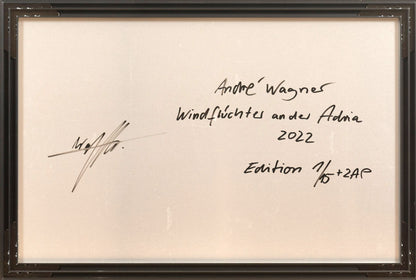 André Wagner
Windflüchter an der Adria
2022
Edition 1/5 + 2AP